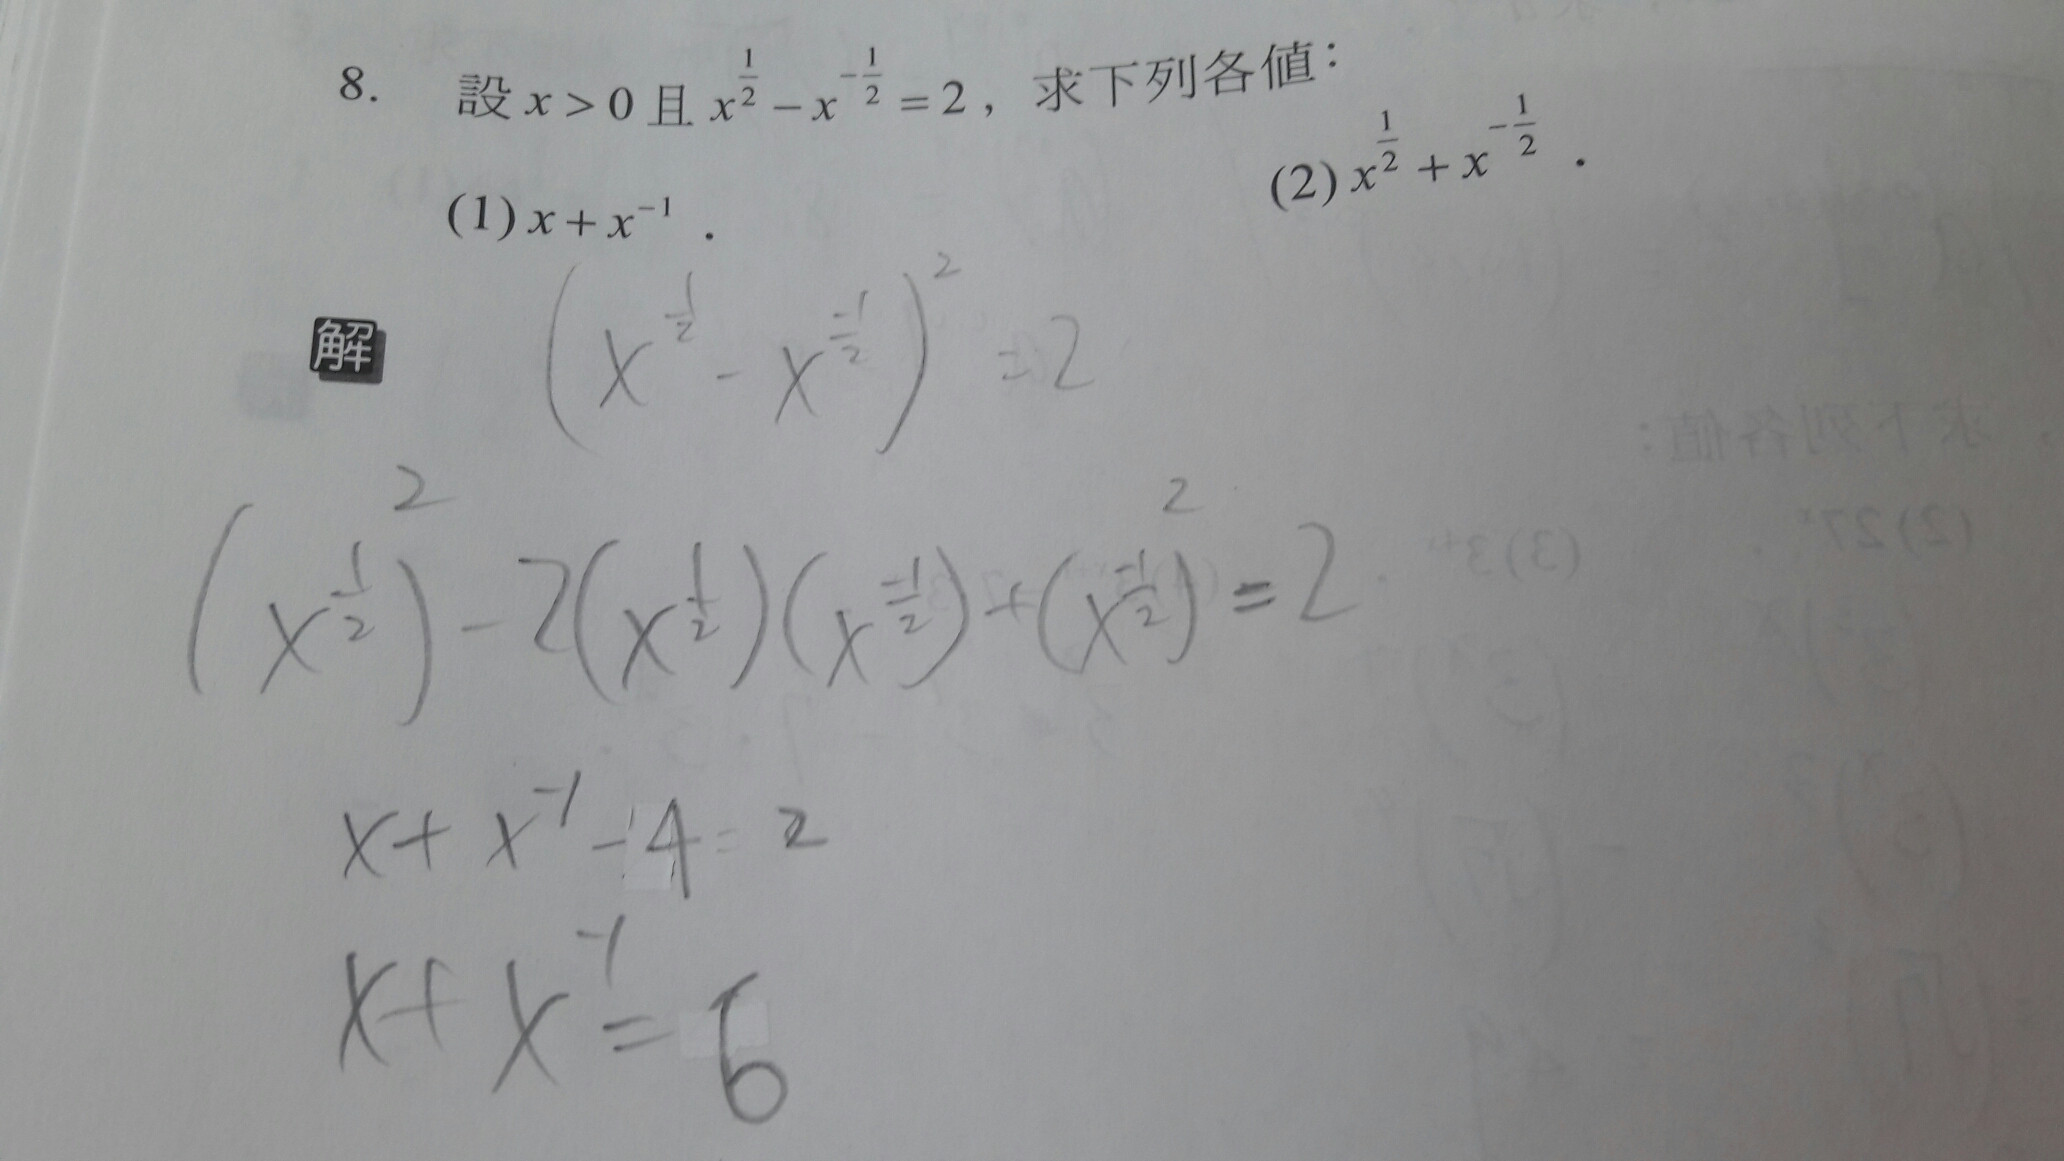 8. 設 x > 0 且 x^{\frac{1}{2}} - x^{-\frac{1}{2}} = 2，求下列各値：
(1) x + x^{-1}． (2) x^{\frac{1}{2}} + x^{-\frac{1}{2}}．
解 (x^{\frac{1}{2}} - x^{\frac{-1}{2}})^2 = 2
(x^{\frac{1}{2}})^2 - 2(x^{\frac{1}{2}})(x^{\frac{-1}{2}}) + (x^{\frac{-1}{2}})^2 = 2
x + x^{-1} - 4 = 2
x + x^{-1} = 6